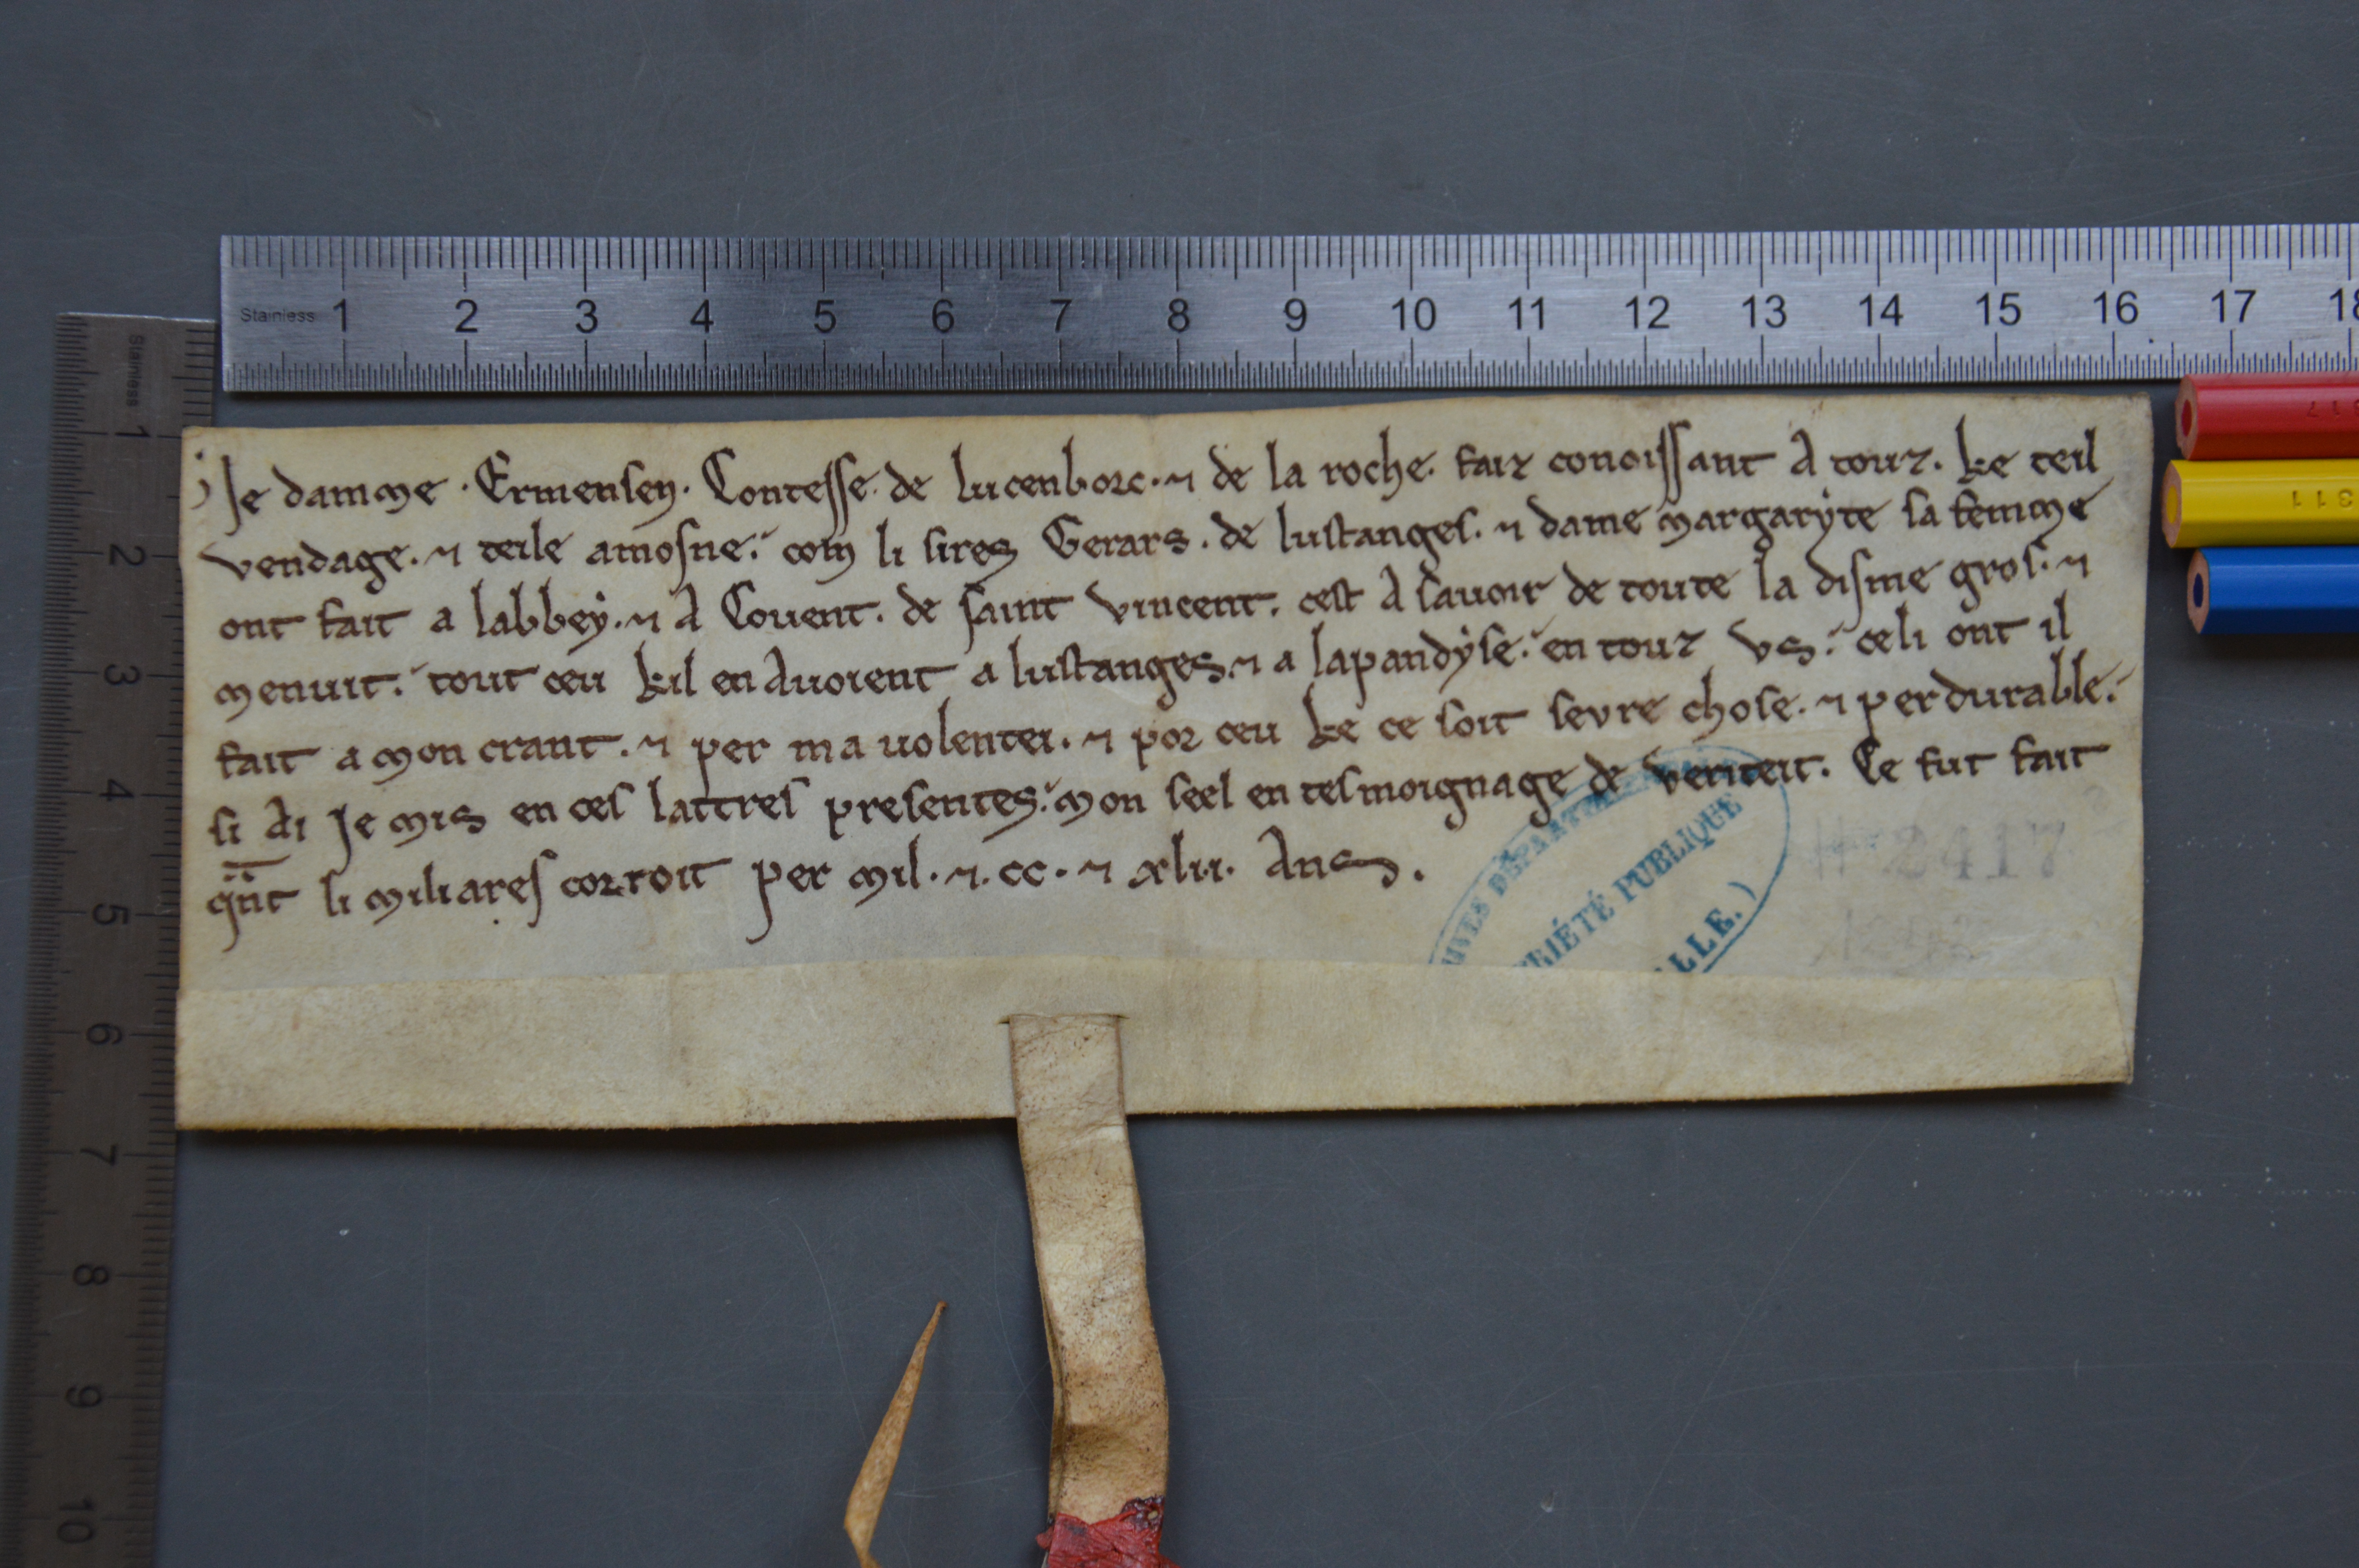 Stainless 1 2 3 4 5 6 7 8 9 10 11 12 13 14 15 16 17 18
Stainless 1 2 3 4 5 6 7 8 9 10
Je damme . Ermensen . Contesse . de lucenborc . ⁊ de la roche . faiz conoissant A touz . ke teil
vendage . ⁊ teile amosne . com li sires Gerars . de lustanges . ⁊ dame margaryte sa femme
ont fait a labbey . ⁊ A Couent . de saint vincent . cest A sauoir de toute la disme gros . ⁊
menuit . tout ceu kil en Auoient a lustanges . ⁊ a lapandyse . en touz vs . celi ont il
fait a mon crant . ⁊ per ma uolentei . ⁊ por ceu ke ce soit sevre chose . ⁊ perdurable .
si Ai Je mis en ces lattres presentes . mon seel en tesmoignage de veriteit . Ce fut fait
qn̄t li miliares corroit per mil . ⁊ . cc . ⁊ xlii . Ans .
PUBLIQUE
2417
311